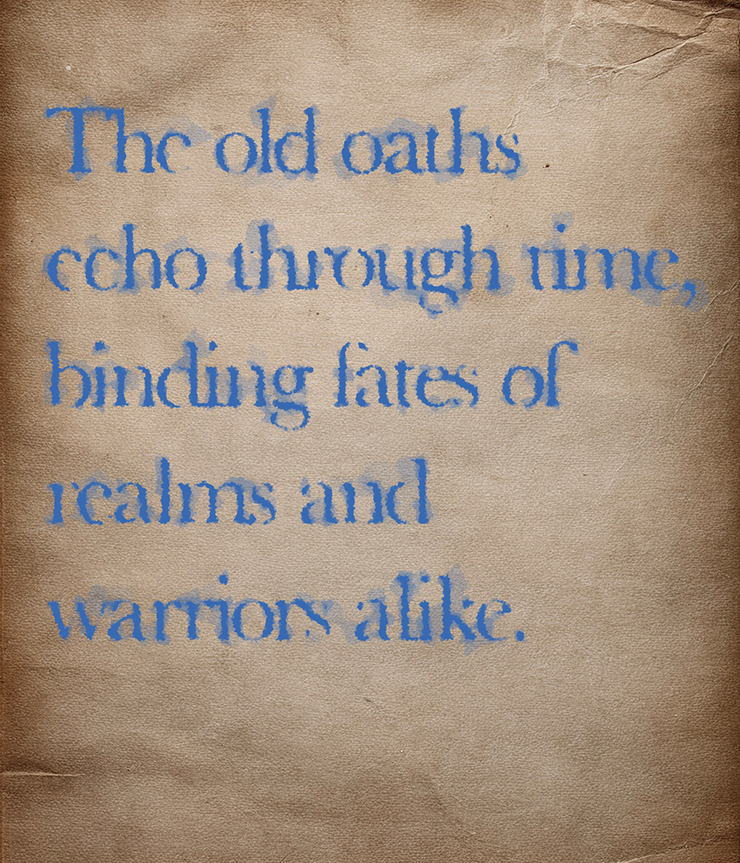 The old oaths
echo through time,
binding fates of
realms and
warriors alike.